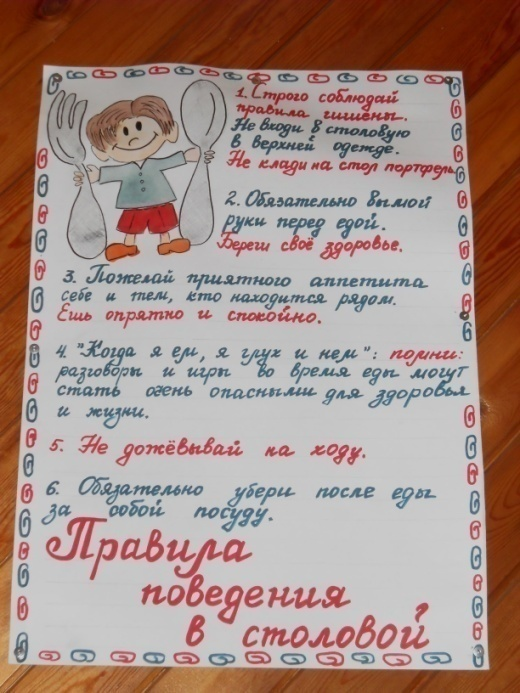 1. Строго соблюдай
правила гигиены.
Не входи в столовую
в верхней одежде.
Не клади на стол портфель
2. Обязательно вымой
руки перед едой.
Береги своё здоровье.
3. Пожелай приятного аппетита
себе и тем, кто находится рядом.
Ешь опрятно и спокойно.
4. "Когда я ем, я глух и нем": помни:
разговоры и игры во время еды могут
стать очень опасными для здоровья
и жизни.
5. Не дожёвывай на ходу.
6. Обязательно убери после еды
за собой посуду.
Правила
поведения
в столовой